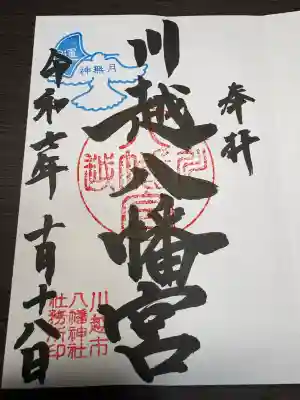 奉拝
川越八幡宮
川越市
八幡神社
社務所印
神無月
令和六年十月十八日